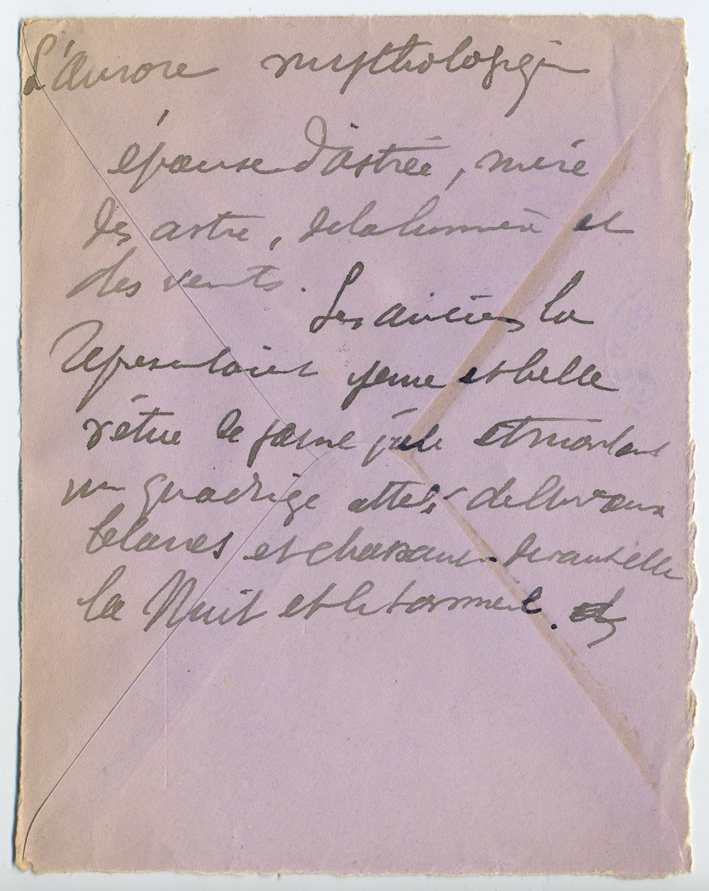 L'aurore mythologi
épouse d'astrée, mère
des astre, de la lumière et
des vents.
Les anciens la
représentaient jeune et belle
vêtue de jaune et montant
un quadrige attelé de chevaux
blancs et chassant devant elle
la Nuit et le sommeil.